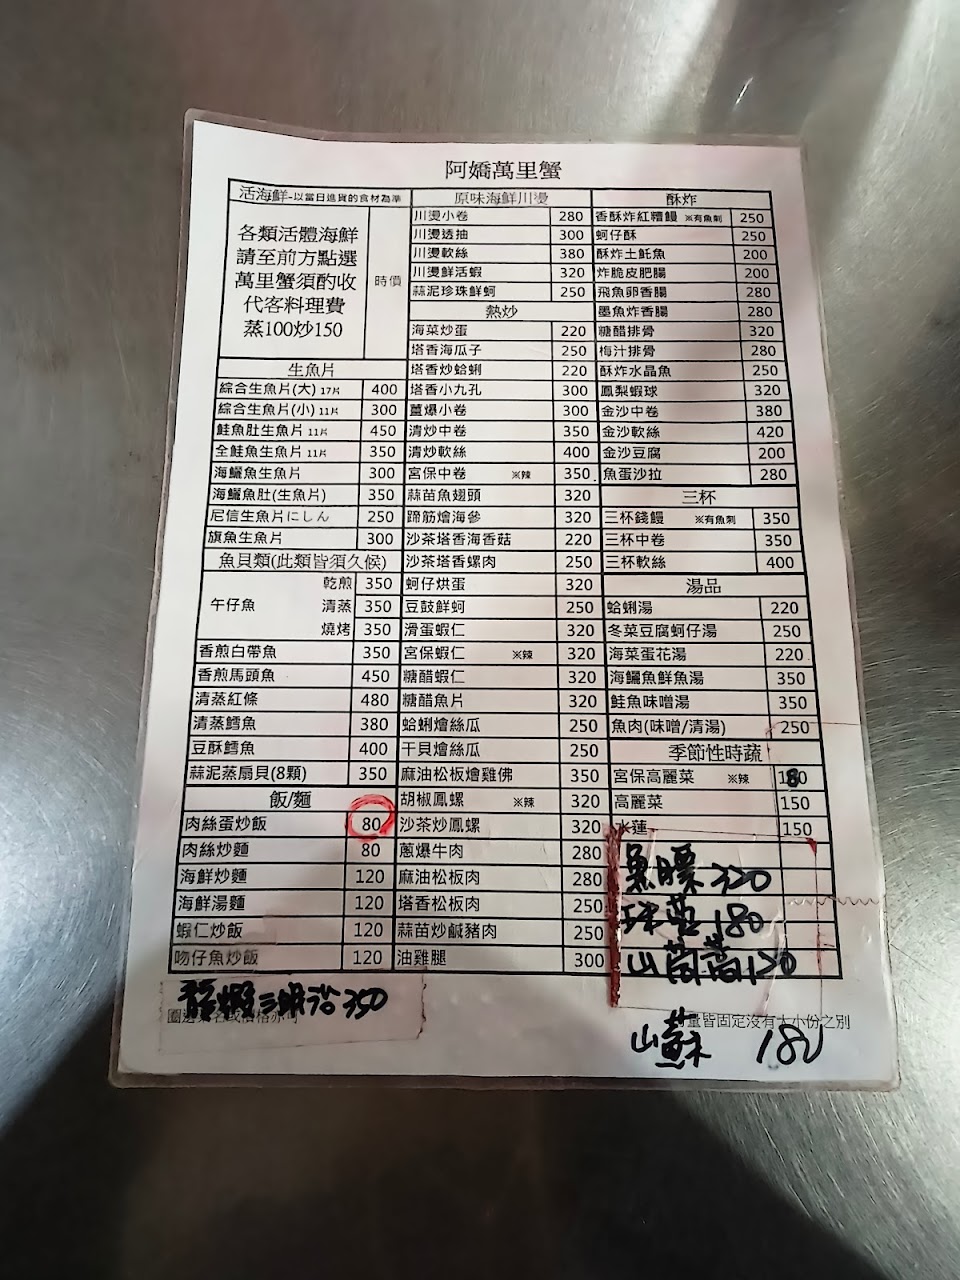 阿嬌萬里蟹
活海鮮-以當日進貨的食材為準
各類活體海鮮
請至前方點選
萬里蟹須酌收
代客料理費
蒸100炒150
時價
生魚片
綜合生魚片(大) 17片 400
綜合生魚片(小) 11片 300
鮭魚肚生魚片 11片 450
全鮭魚生魚片 11片 350
海鱺魚生魚片 300
海鱺魚肚(生魚片) 350
尼信生魚片にしん 250
旗魚生魚片 300
魚貝類(此類皆須久候)
午仔魚
乾煎 350
清蒸 350
燒烤 350
香煎白帶魚 350
香煎馬頭魚 450
清蒸紅條 480
清蒸鱈魚 380
豆酥鱈魚 400
蒜泥蒸扇貝(8顆) 350
飯/麵
肉絲蛋炒飯 80
肉絲炒麵 80
海鮮炒麵 120
海鮮湯麵 120
蝦仁炒飯 120
吻仔魚炒飯 120
原味海鮮川燙
川燙小卷 280
川燙透抽 300
川燙軟絲 380
川燙鮮活蝦 320
蒜泥珍珠鮮蚵 250
熱炒
海菜炒蛋 220
塔香海瓜子 250
塔香炒蛤蜊 220
塔香小九孔 300
薑爆小卷 300
清炒中卷 350
清炒軟絲 400
宮保中卷 ※辣 350
蒜苗魚翅頭 320
蹄筋燴海參 320
沙茶塔香海香菇 220
沙茶塔香螺肉 250
蚵仔烘蛋 320
豆鼓鮮蚵 250
滑蛋蝦仁 320
宮保蝦仁 ※辣 320
糖醋蝦仁 320
糖醋魚片 320
蛤蜊燴絲瓜 250
干貝燴絲瓜 250
麻油松板燴雞佛 350
胡椒鳳螺 ※辣 320
沙茶炒鳳螺 320
蔥爆牛肉 280
麻油松板肉 280
塔香松板肉 250
蒜苗炒鹹豬肉 250
油雞腿 300
酥炸
香酥炸紅糟鰻 ※有魚刺 250
蚵仔酥 250
酥炸土魠魚 200
炸脆皮肥腸 200
飛魚卵香腸 280
墨魚炸香腸 280
糖醋排骨 320
梅汁排骨 280
酥炸水晶魚 250
鳳梨蝦球 320
金沙中卷 380
金沙軟絲 420
金沙豆腐 200
魚蛋沙拉 280
三杯
三杯錢鰻 ※有魚刺 350
三杯中卷 350
三杯軟絲 400
湯品
蛤蜊湯 220
冬菜豆腐蚵仔湯 250
海菜蛋花湯 220
海鱺魚鮮魚湯 350
鮭魚味噌湯 350
魚肉(味噌/清湯) 250
季節性時蔬
宮保高麗菜 ※辣 180
高麗菜 150
水蓮 150
魚膘 320
180
山茼蒿 120
龍蝦三明治 350
量皆固定沒有大小份之別
山蘇 180